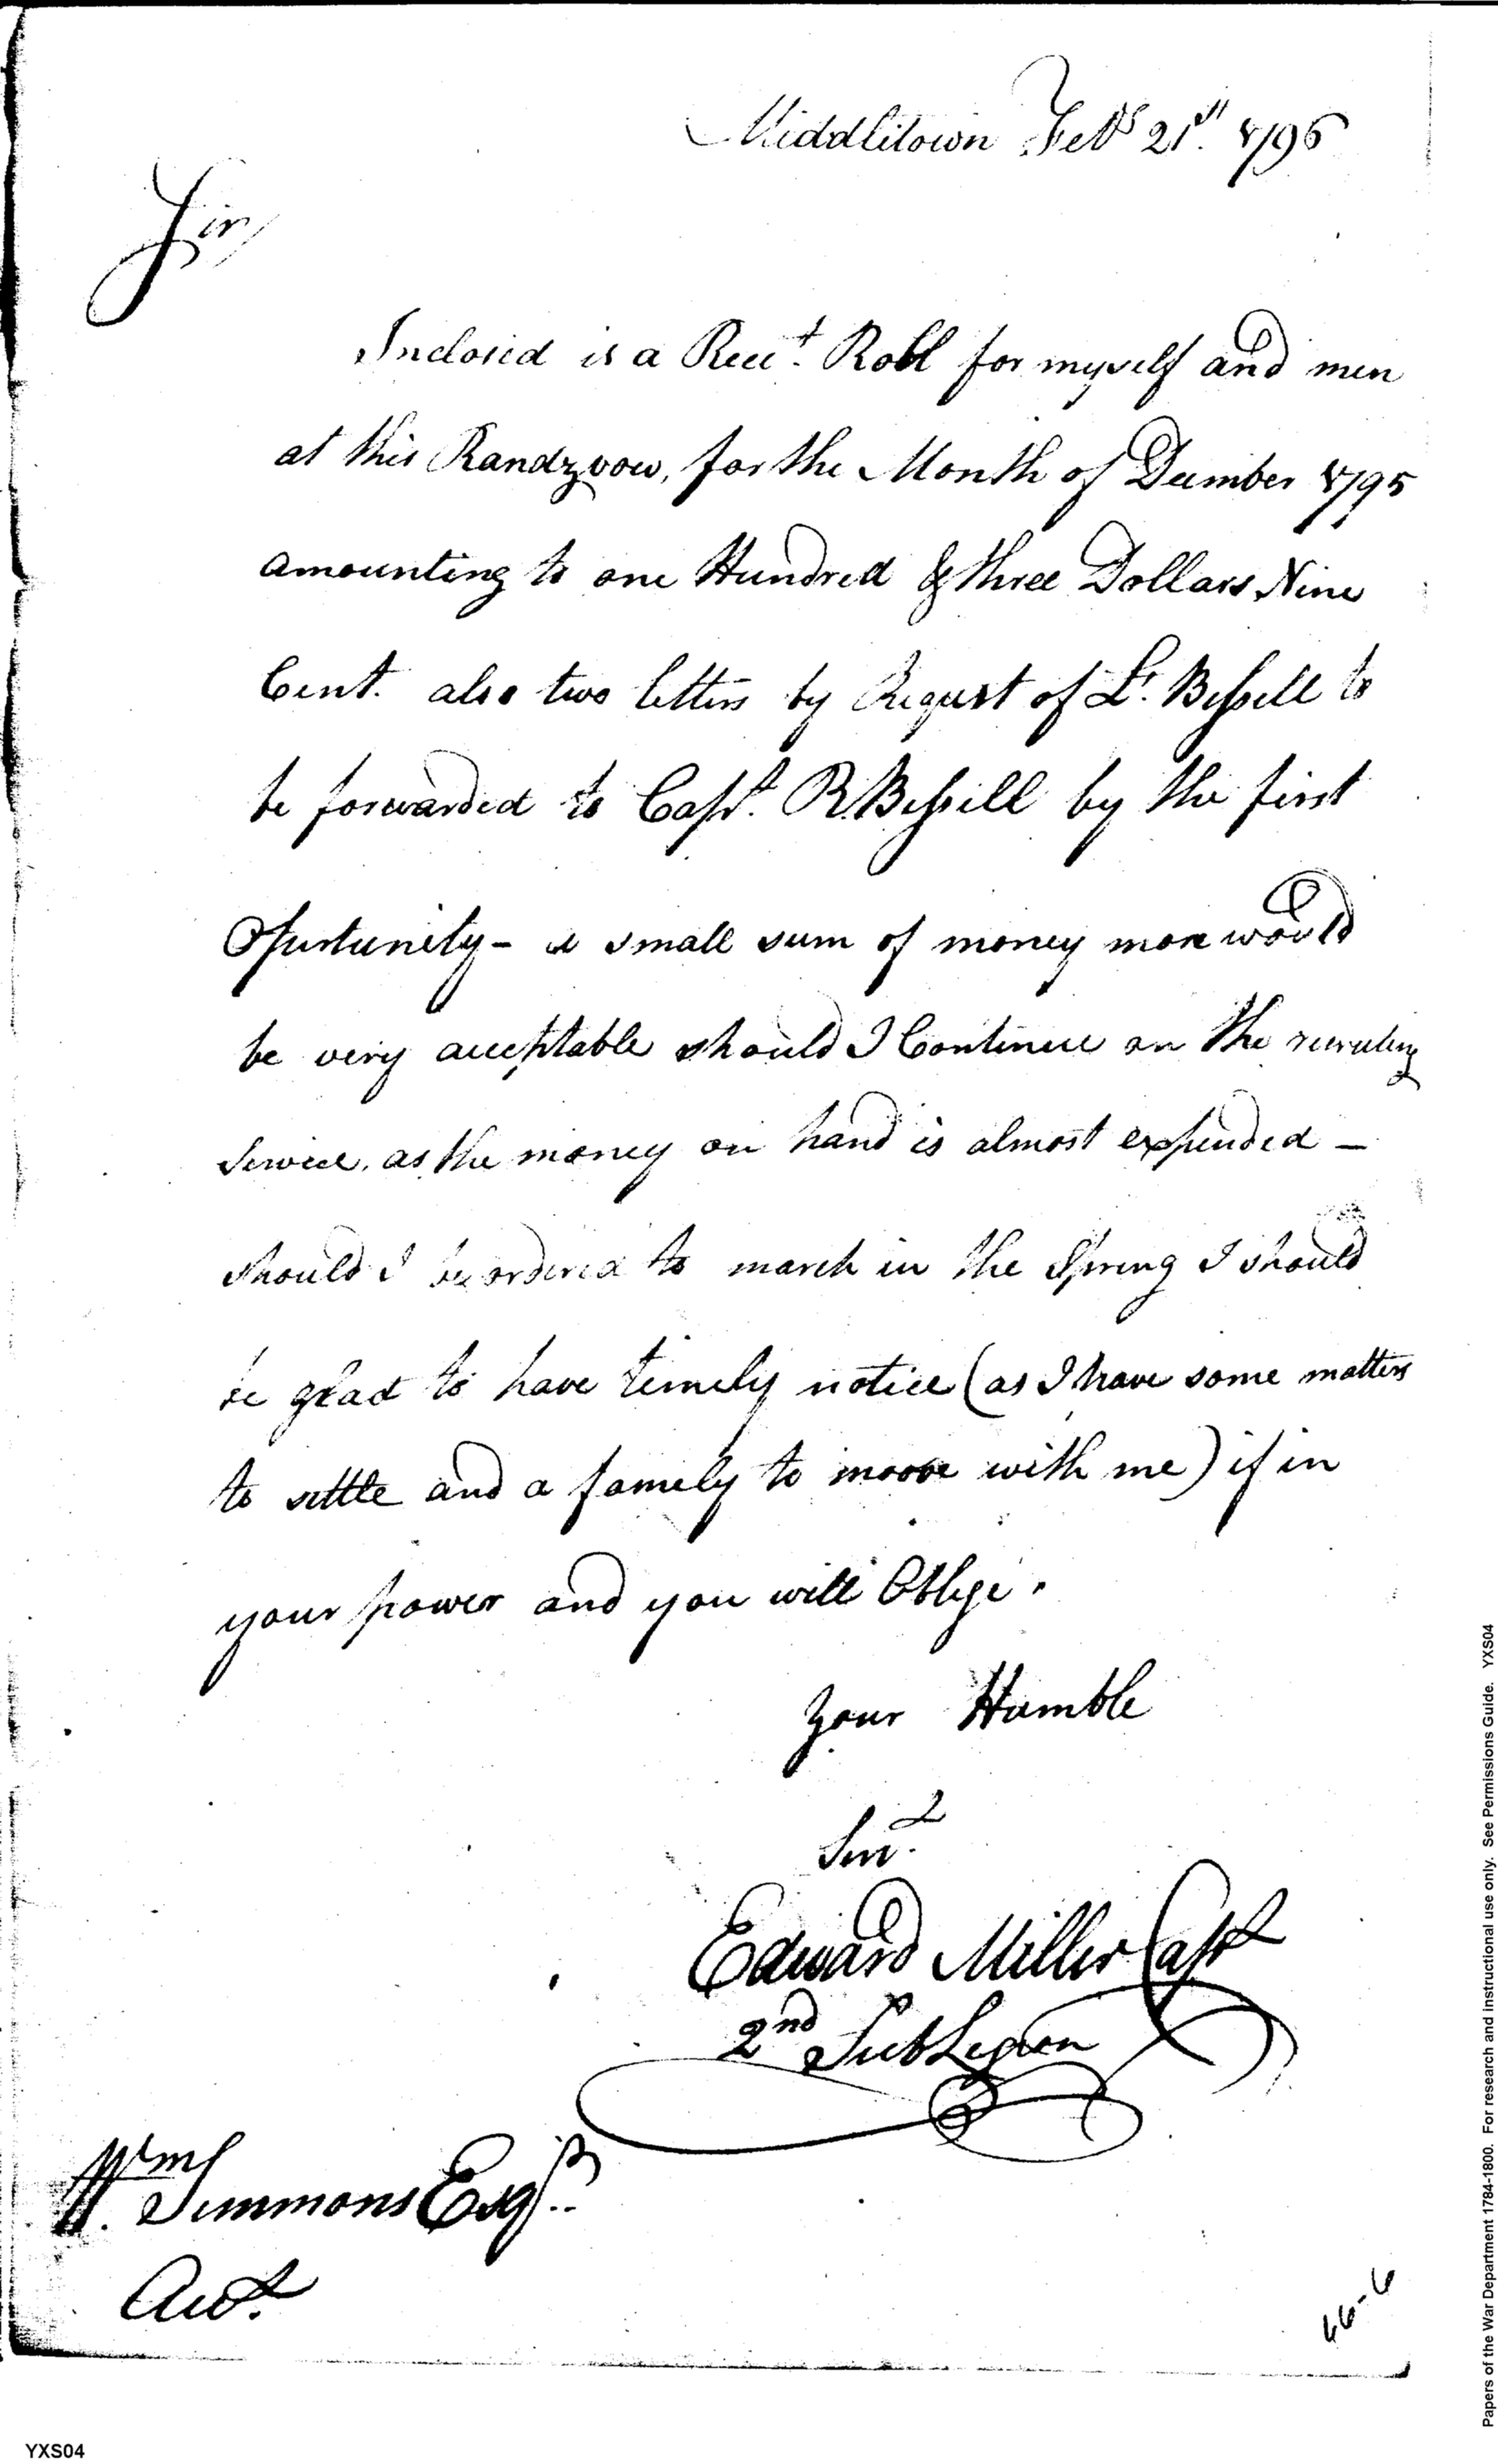 Middletown Feby 21st 1796
Sir/
Inclosed is a Recet. Roll for myself and men
at this Randzvow, for the Month of December 1795
amounting to one Hundred & three Dollars Nine
Cent. also two letters by Request of Lt. Bissell to
be forwarded to Capt. R. Bissell by the first
Opurtunity - a small sum of money more would
be very acceptable should I Continue on the recruting
Service, as the money on hand is almost expended -
should I be ordered to march in the Spring I should
be glad to have timely notice (as I have some matters
to settle and a famely to moove with me) if in
your power and you will Oblige.
Your Humble
Servt.
Edward Miller Capt
2nd Sub Legion
Wm. Simmons Esqr.
Acct.
YXS04
Papers of the War Department 1784-1800. For research and instructional use only. See Permissions Guide. YXS04